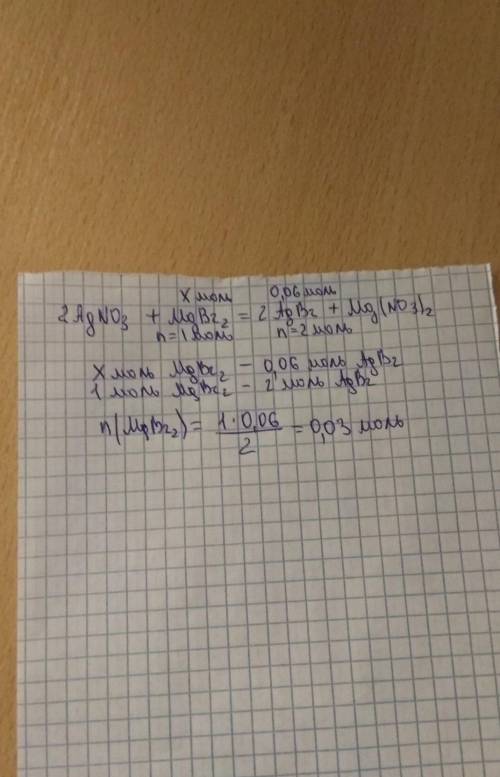 X моль 0,06 моль
2AgNO3 + MgBr2 = 2AgBr + Mg(NO3)2
n=1моль n=2моль
X моль MgBr2 – 0,06 моль AgBr
1 моль MgBr2 – 2 моль AgBr
n(MgBr2) = 1·0,06 / 2 = 0,03 моль